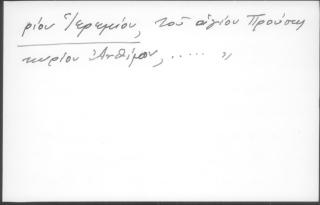 ρίου Ἱερεμίου, τοῦ ἁγίου Προύσης
κυρίου Ἀνθίμου, ..... »